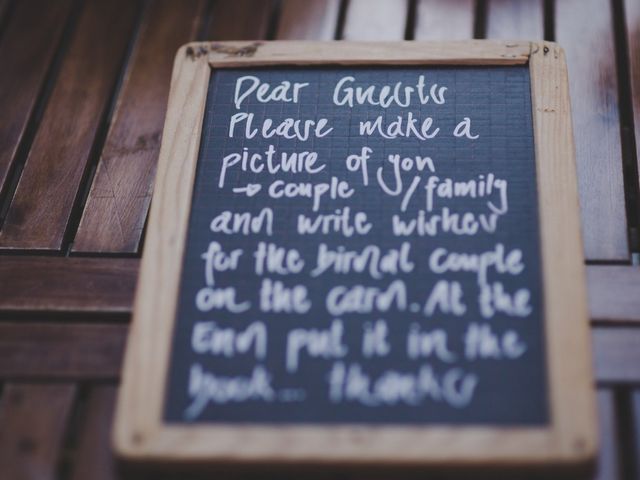 Dear Guests
Please make a
picture of you
→ couple / family
and write wishes
for the bridal couple
on the card. At the
End put it in the
book... thanks